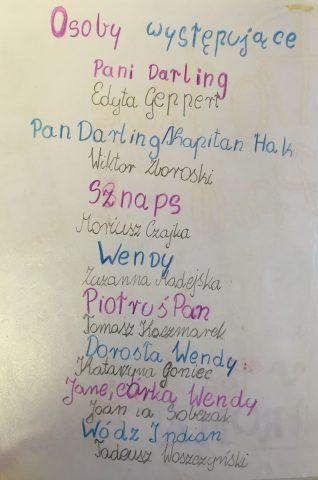 Osoby występujące
Pani Darling
Edyta Geppert
Pan Darling/Kapitan Hak
Wiktor Zborowski
Sznaps
Mariusz Czajka
Wendy
Zuzanna Madejska
Piotruś Pan
Tomasz Kaczmarek
Dorosła Wendy:
Katarzyna Goniec
Jane, córka Wendy
Joanna Sobczak
Wódz Indian
Tadeusz Woszczyński